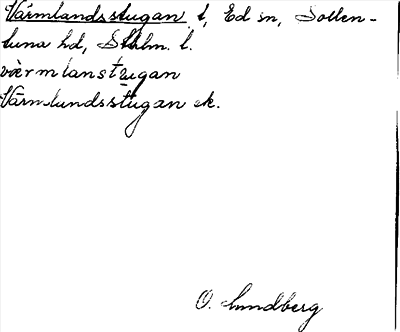 Värmlandsstugan t, Ed sn, Sollen-
tuna hd, Sthlm. l.
værmlanstugan
Värmlundsstugan ek.
O. Lundberg